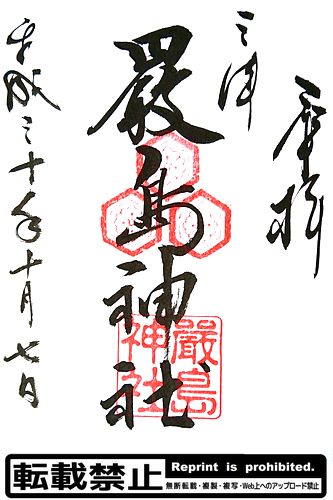 奉拝
三津
厳島神社
平成三十年十月七日
嚴島
神社
転載禁止
Reprint is prohibited.
無断転載・複製・複写・Web上へのアップロード禁止